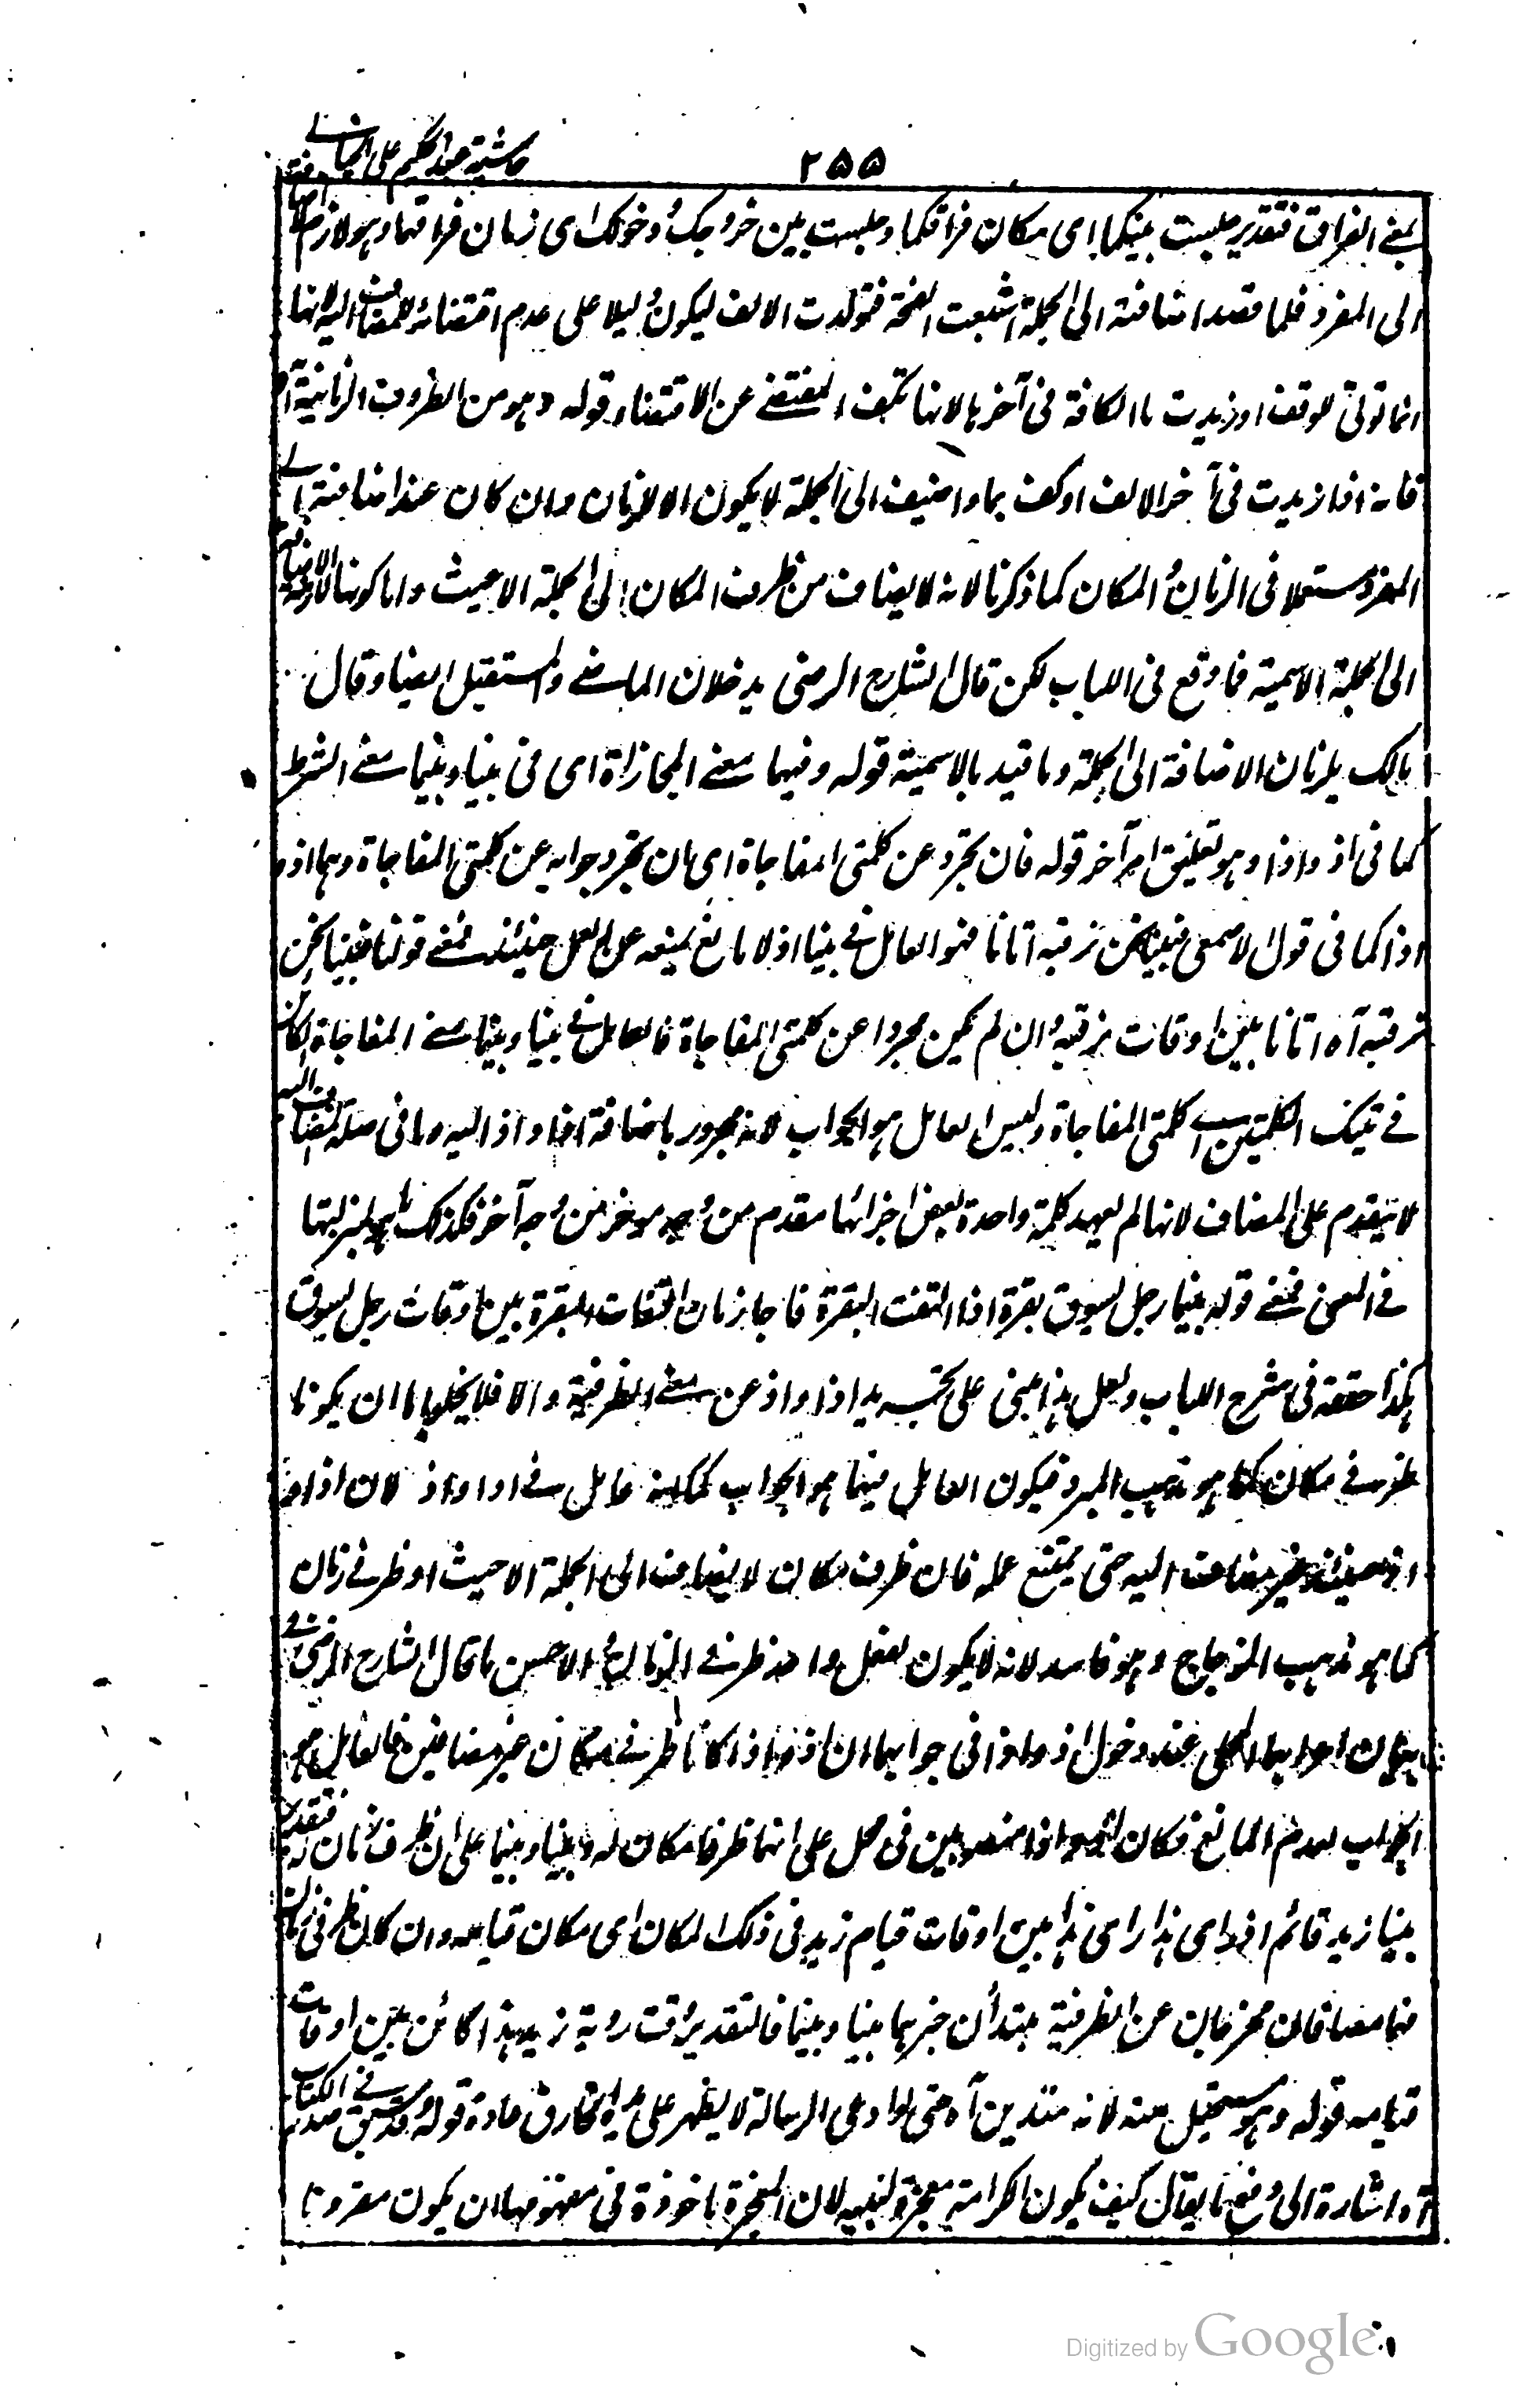 حاشية عبد الحكيم على الخيالي
٢٥٥
بمعنى الفراق فتقدير جلست بينكما اى مكان فراقكما وجلست بين خروجك ودخولك اى زمان فراقهما وهو لازم الاضافة
الى المفرد فلما قصد اضافته الى الجملة اشبعت الفتحة فتولدت الالف ليكون دليلا على عدم اقتضائه للمضاف اليه لانها
انما تؤتى للوقف او زيدت ما الكافة فى آخرها لانها تكف المقتضى عن الاقتضاء قوله وهو من الظروف الزمانية آه
فانه اذا زيدت فى آخر الالف او كف بما واضيف الى الجملة لا يكون الا للزمان وان كان عند اضافته الى
المفرد مستعملا فى الزمان والمكان كما ذكرنا لانه لا يضاف من ظروف المكان الى الجملة الا حيث واما كونها لازمة الاضافة
الى الجملة الاسمية فما وقع فى اللباب لكن قال الشارح الرضى يدخلان الماضى والمستقبل ايضا وقال
مالك يلزمان الاضافة الى الجملة وما قيد بالاسمية قوله وفيهما معنى المجازاة اى فى بينا وبينما معنى الشرط
كما فى اذ واذا وهو تعليق امر آخر قوله فان تجرد عن كلمتى المفاجاة اى ان تجرد جوابه عن كلمتى المفاجاة وهما اذ و
اذا كما فى قول الاصمعى فبينا نحن نرقبه اتانا فهو العامل فى بينا اذ لا مانع يمنعه عن العمل حينئذ فمعنى قولنا فبينا نحن
نرقبه آه اتانا بين اوقات نرقبه وان لم يكن مجردا عن كلمتى المفاجاة فالعامل فى بينا وبينما معنى المفاجاة الكائن
فى تينك الكلمتين اى كلمتى المفاجاة وليس العامل هو الجواب لانه مجرور باضافة اذا واذ اليه وما فى صلة المضاف اليه
لا يتقدم على المضاف لانها لم يعهد كلمة واحدة بعض اجزائها مقدم من وجه موخر من وجه آخر فكذلك ما هو بمنزلتها
فى المعنى فمعنى قوله بينما رجل يسوق بقرة اذا التفت البقرة فاجا زمان التفات البقرة بين اوقات رجل يسوق
هكذا حققه فى شرح اللباب ولعل هذا مبنى على تجريد اذا واذ عن معنى الظرفية والا فلا يخلو اما ان يكونا
ظرفى مكان كما هو مذهب المبرد فيكون العامل فيهما هو الجواب كما انه عامل فى اذا واذ لان اذا و
اذ حينئذ غير مضاف اليه حتى يمتنع عمله فان ظرف مكان لا يضاف الى الجملة الا حيث او ظرفى زمان
كما هو مذهب الزجاج وهو فاسد لانه لا يكون لفعل واحد ظرفى الزمان والاحسن ما قال الشارح الرضى فى
عند دخول اذ واذا فى جوابهما ان اذ واذا كانا ظرفى مكان غير مضافين فالعامل هو
الجواب لعدم المانع فكان اذ واذا منصوبين فى محل على انهما ظرفا مكان له وبينا وبينما على انه ظرف زمان له فتقدير
بينا زيد قائم اذ راى هذا راى هذا بين اوقات قيام زيد فى ذلك المكان اى مكان قيامه وان كان ظرفى زمان
فهما مضافان مخرجان عن الظرفية مبتدأن خبرهما بينا وبينما فالتقدير وقت روية زيد هذا كائن بين اوقات
قيامه قوله وهو مستحيل منه لانه متدين آه حتى لو ادعى الرسالة لا يظهر على يده الخارق عادة قوله وقد سبق فى صدر الكتاب
آه اشارة الى دفع ما يقال كيف يكون الكرامة معجزة لنبيه لان المعجزة ماخوذة فى مفهومها ان يكون مقرونا
Digitized by Google